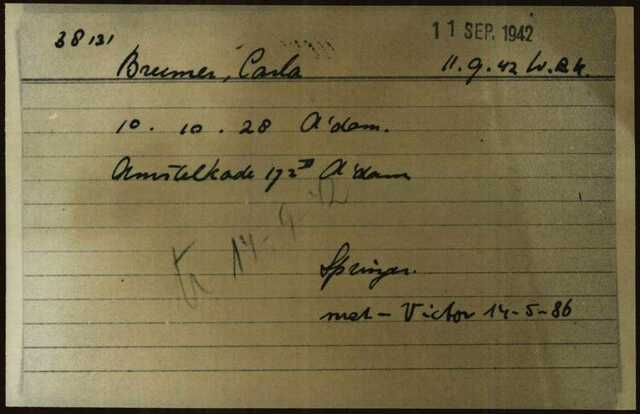 38131
11 SEP. 1942
Breemer, Carla 11.9.42 W.B.K.
10. 10. 28 A'dam.
Amstelkade 172 II A'dam
tr 14-9-42
Springer.
met - Victor 14-5-86